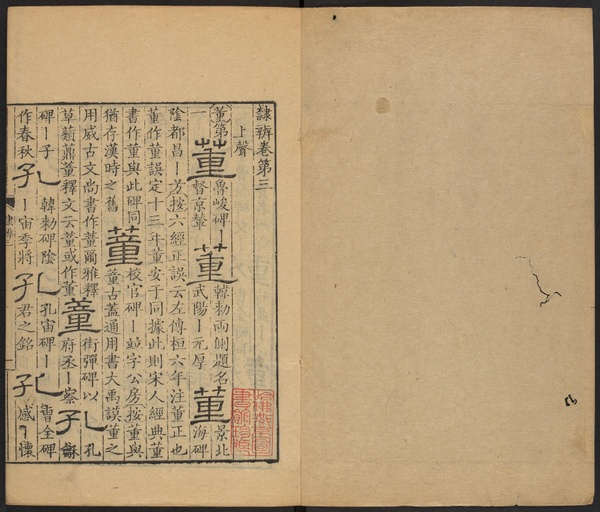 隸辨卷第三
上聲
董第一 董 魯峻碑丨督京輦 董 韓勑兩側題名武陽丨元厚 董 景北海碑
陰都昌丨芳按六經正誤云左傳桓六年注董正也
董作蕫誤定十三年董安于同據此則宋人經典董
書作蕫與此碑同 蕫 校官碑丨竝字公房按董與
猶存漢時之舊 蕫古蓋通用書大禹謨董之
用威古文尚書作蕫爾雅釋
草蘱薡蕫釋文云蕫或作董 蕫 街彈碑以府丞丨察 孔 孔龢
碑丨子 孔 韓勑碑陰 孔 孔宙碑丨 孔 曹全碑
作春秋 孔 丨宙季將 孔 君之銘 孔 感丨懷